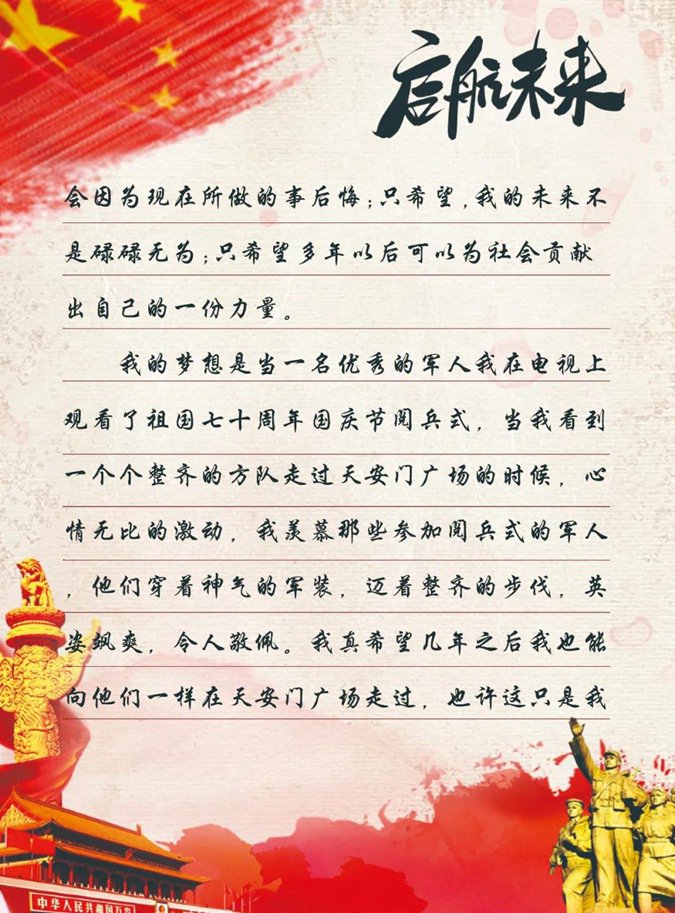 启航未来
会因为现在所做的事后悔;只希望,我的未来不
是碌碌无为;只希望多年以后可以为社会贡献
出自己的一份力量。
我的梦想是当一名优秀的军人我在电视上
观看了祖国七十周年国庆节阅兵式，当我看到
一个个整齐的方队走过天安门广场的时候，心
情无比的激动，我羡慕那些参加阅兵式的军人
，他们穿着神气的军装，迈着整齐的步伐，英
姿飒爽，令人敬佩。我真希望几年之后我也能
向他们一样在天安门广场走过，也许这只是我
中华人民共和国万岁